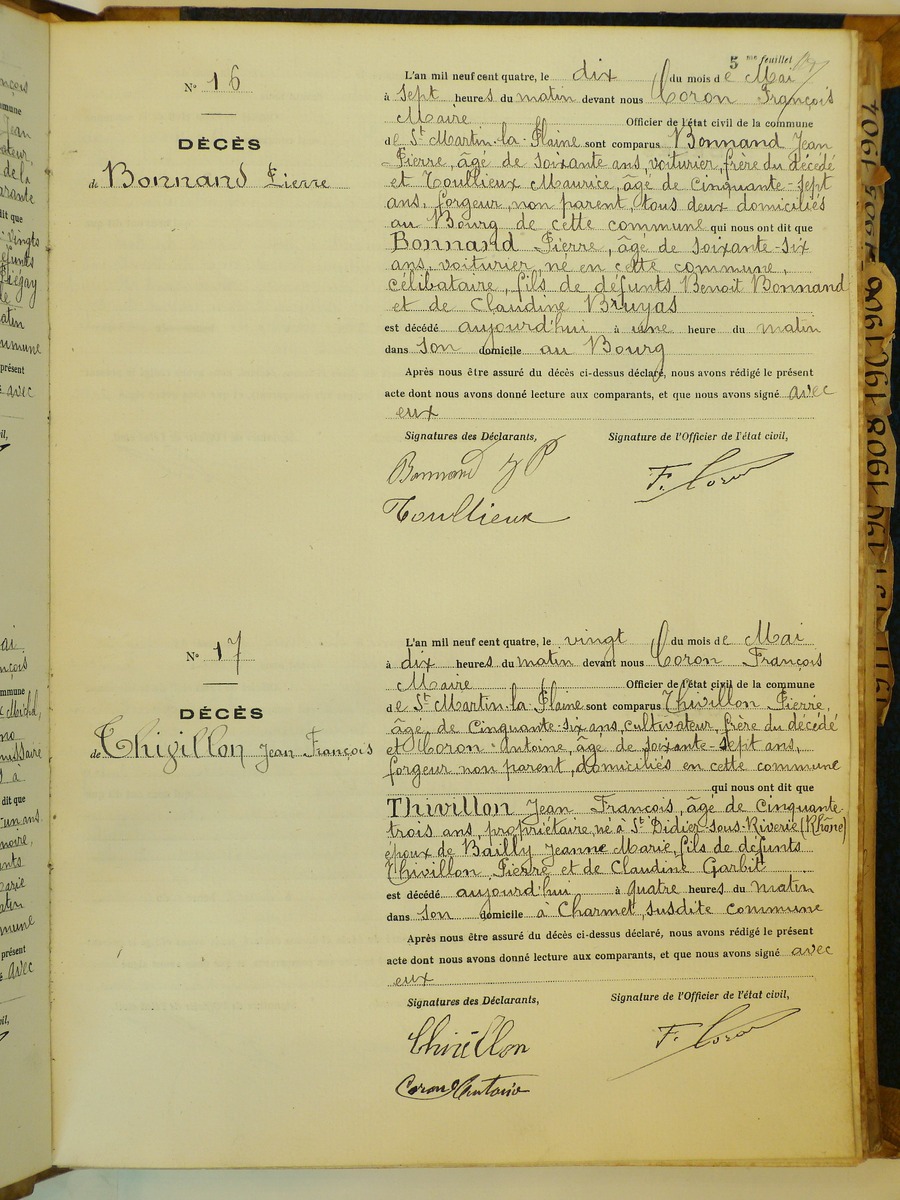 5 me feuillet
N° 16
DÉCÈS
de Bonnand Pierre
L'an mil neuf cent quatre, le dix du mois de Mai
à sept heures du matin devant nous Coron François
Maire Officier de l'état civil de la commune
de St Martin-la-Plaine sont comparus Bonnand Jean
Pierre, âgé de soixante ans, voiturier, frère du décédé
et Toullieux Maurice, âgé de cinquante-sept
ans, forgeur, non parent, tous deux domiciliés
au Bourg de cette commune qui nous ont dit que
Bonnand Pierre, âgé de soixante-six
ans, voiturier, né en cette commune,
célibataire, fils de défunts Benoit Bonnand
et de Claudine Bruyas
est décédé aujourd'hui à une heure du matin
dans son domicile au Bourg
Après nous être assuré du décès ci-dessus déclaré, nous avons rédigé le présent
acte dont nous avons donné lecture aux comparants, et que nous avons signé avec
eux
Signatures des Déclarants, Signature de l'Officier de l'état civil,
Bonnand J P F. Coron
Toullieux
N° 17
DÉCÈS
de Thivillon Jean François
L'an mil neuf cent quatre, le vingt du mois de Mai
à dix heures du matin devant nous Coron François
Maire Officier de l'état civil de la commune
de St Martin-la-Plaine sont comparus Thivillon Pierre,
âgé de cinquante-six ans, cultivateur, frère du décédé
et Coron Antoine, âgé de soixante-sept ans,
forgeur non parent, domiciliés en cette commune
qui nous ont dit que
Thivillon Jean François, âgé de cinquante-
trois ans, propriétaire, né à St Didier-sous-Riverie (Rhône)
époux de Bailly Jeanne Marie, fils de défunts
Thivillon Pierre et de Claudine Garbit
est décédé aujourd'hui à quatre heures du matin
dans son domicile à Charmet, susdite commune
Après nous être assuré du décès ci-dessus déclaré, nous avons rédigé le présent
acte dont nous avons donné lecture aux comparants, et que nous avons signé avec
eux
Signatures des Déclarants, Signature de l'Officier de l'état civil,
Thivillon F. Coron
Coron Antoine